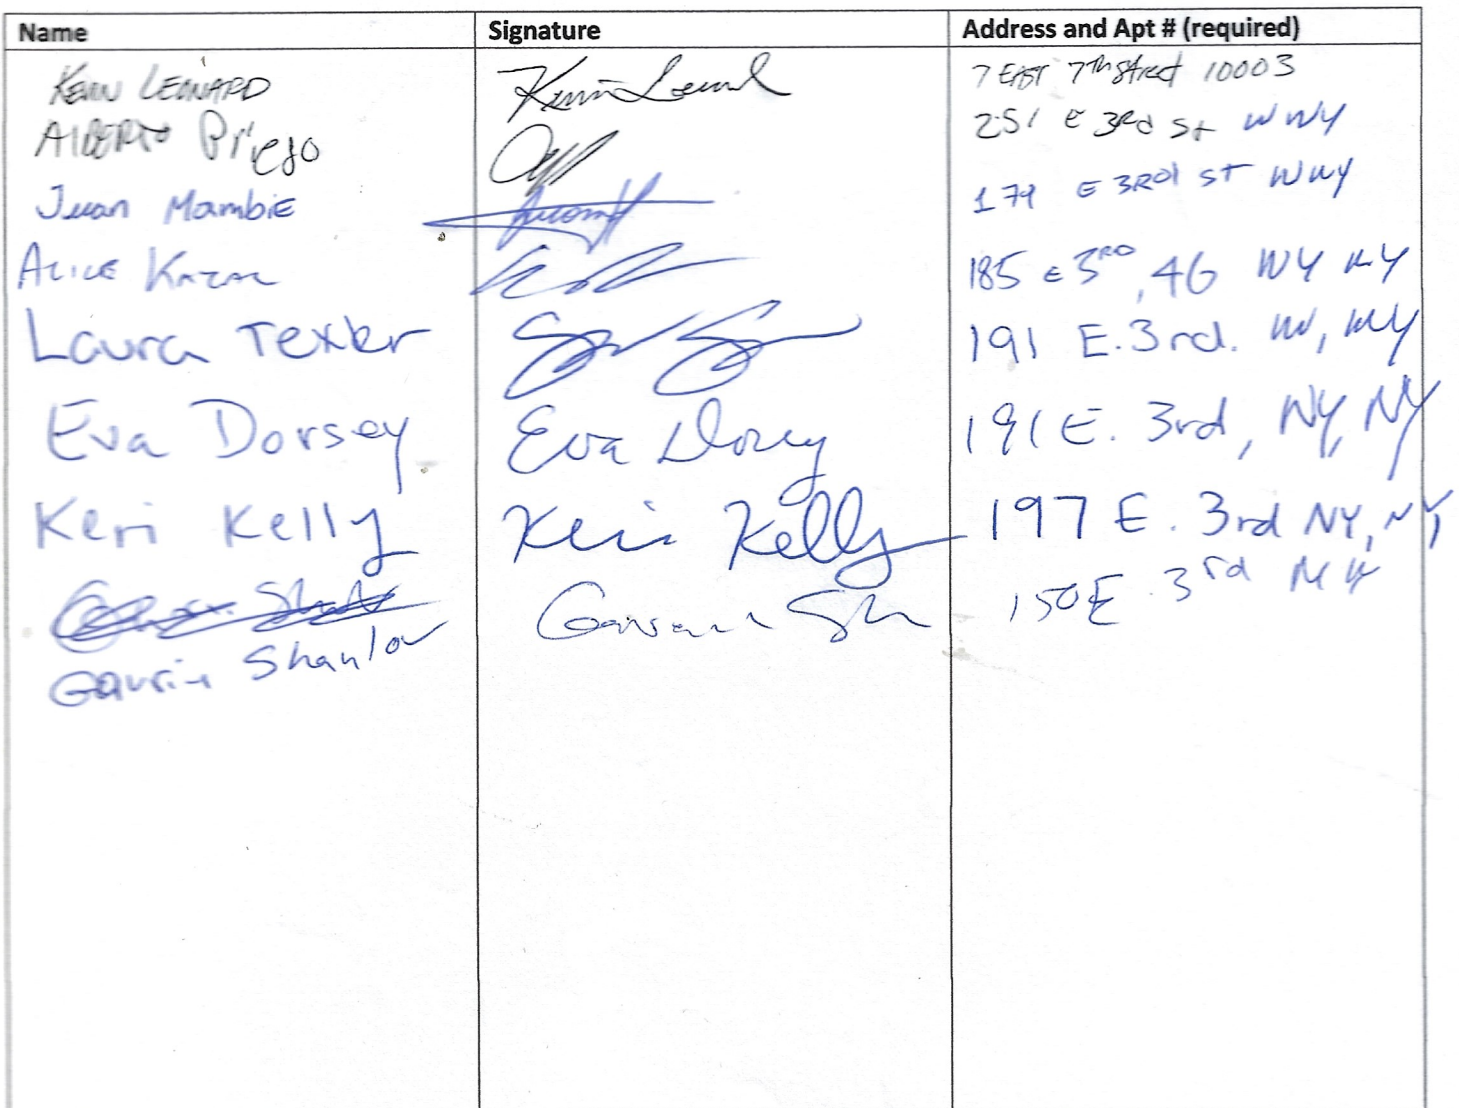 Name Signature Address and Apt # (required)
KEVIN LEONARD Kevin Leonard 7 EAST 7th Street 10003
ALBERTO Priego 251 E 3Rd St NNY
Juan Mambie 179 E 3RD ST NNY
ALICE 185 E 3RD, 4G NY NY
Laura Texler 191 E. 3rd. NY, NY
Eva Dorsey Eva Dorsey 191 E. 3rd, NY, NY
Keri Kelly Keri Kelly 197 E. 3rd NY, NY
150 E. 3rd NY
Shanlov